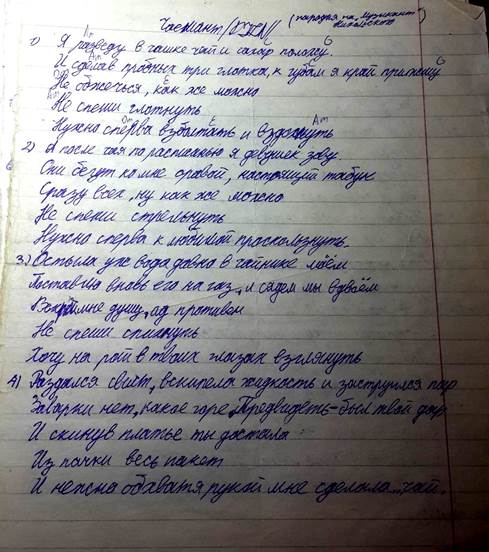 Чаемант (пародия на Музыкант
Никольского)
Am G
1) Я разведу в чашке чай и сахар положу.
Am G
И сделав пробных три глотка, к губам я край прижму
Не обжечься, как же можно
Не спеши глотнуть
Dm E Am
Нужно сперва взболтать и вздохнуть
2) А после чая по расписанью я девушек зову.
Они бегут ко мне оравой, настоящий табун
Сразу всех, ну как же можно
Не спеши стрельнуть
Нужно сперва к любимой проскользнуть.
3) Остыла уж вода давно в чайнике моём
Поставлю вновь его на газ, и сядем мы вдвоём
мне душу, ад противен
Не спеши
Хочу на рай в твоих глазах взглянуть
4) Раздался свист, вскипела жидкость и заструился пар
Заварки нет, какое горе, Предвидеть - был твой дар
И скинув платье ты достала
Из пачки весь пакет
И нежно обхватя рукой мне сделала...чай.